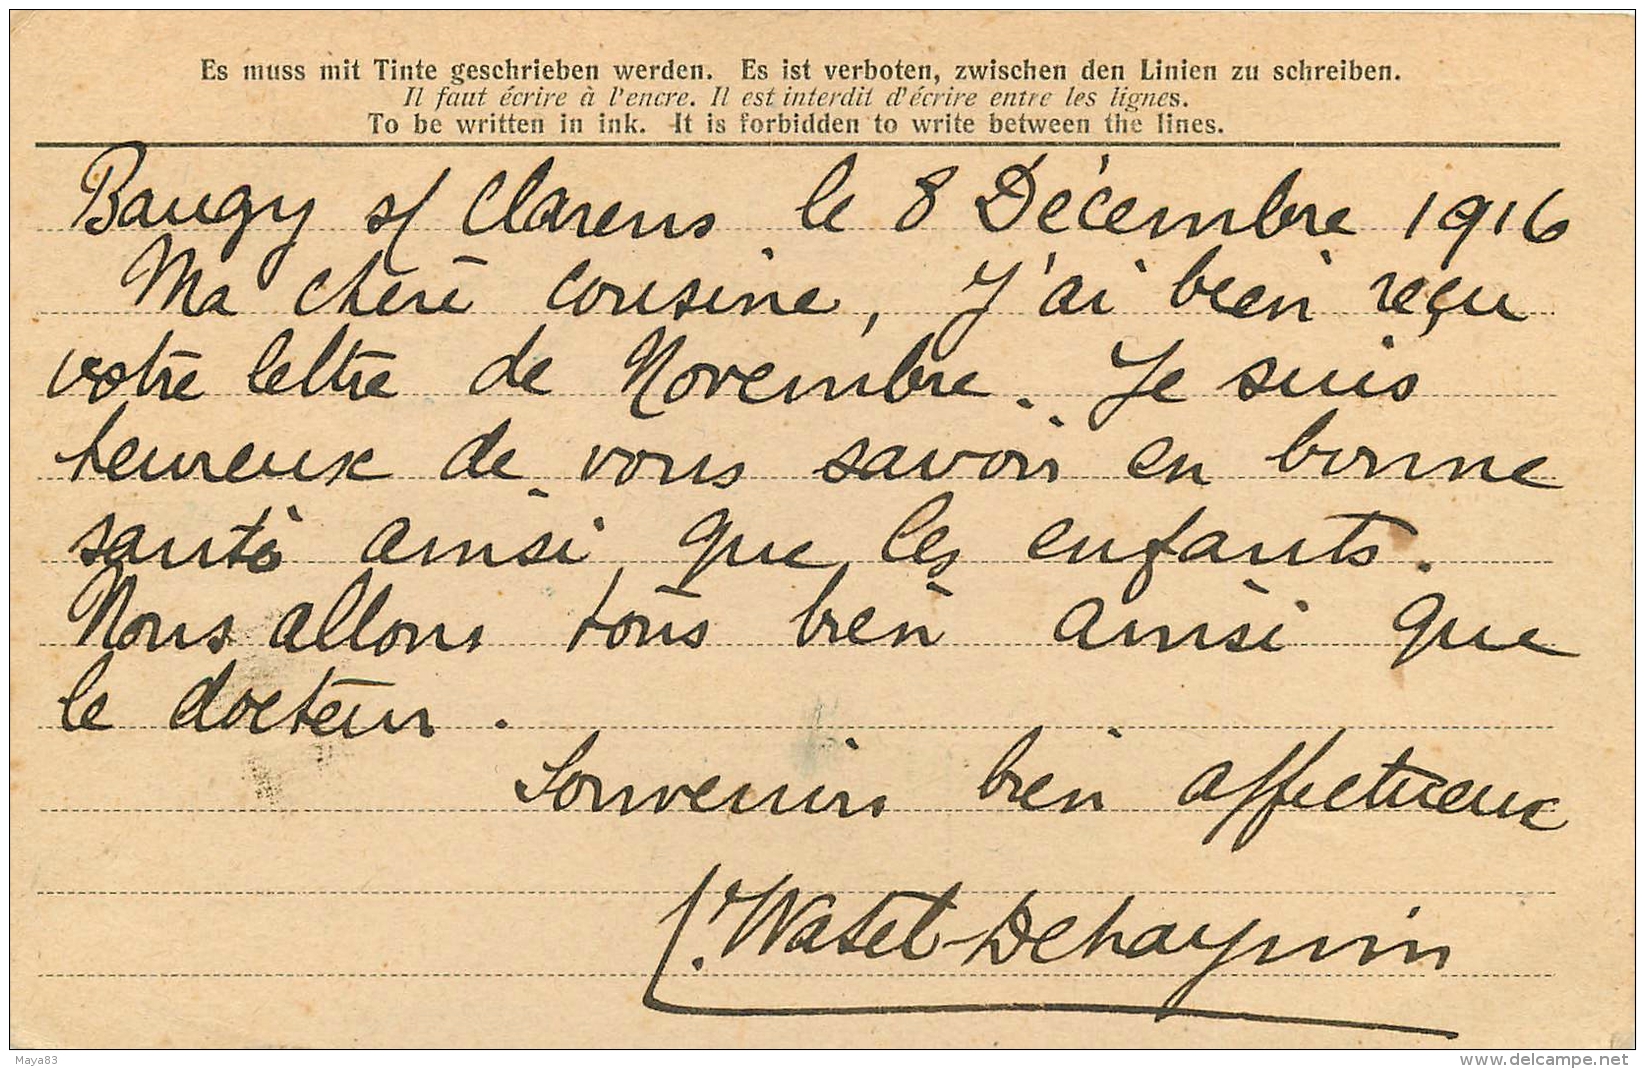 Es muss mit Tinte geschrieben werden. Es ist verboten, zwischen den Linien zu schreiben.
Il faut écrire à l'encre. Il est interdit d'écrire entre les lignes.
To be written in ink. It is forbidden to write between the lines.
Baugy s/ Clarens le 8 Décembre 1916
Ma chère cousine, J'ai bien reçu
votre lettre de Novembre. Je suis
heureux de vous savoir en bonne
santé ainsi que les enfants.
Nous allons tous bien ainsi que
le docteur.
Souvenirs bien affectueux
Watel-Dehaynin
Maya83
www.delcampe.net